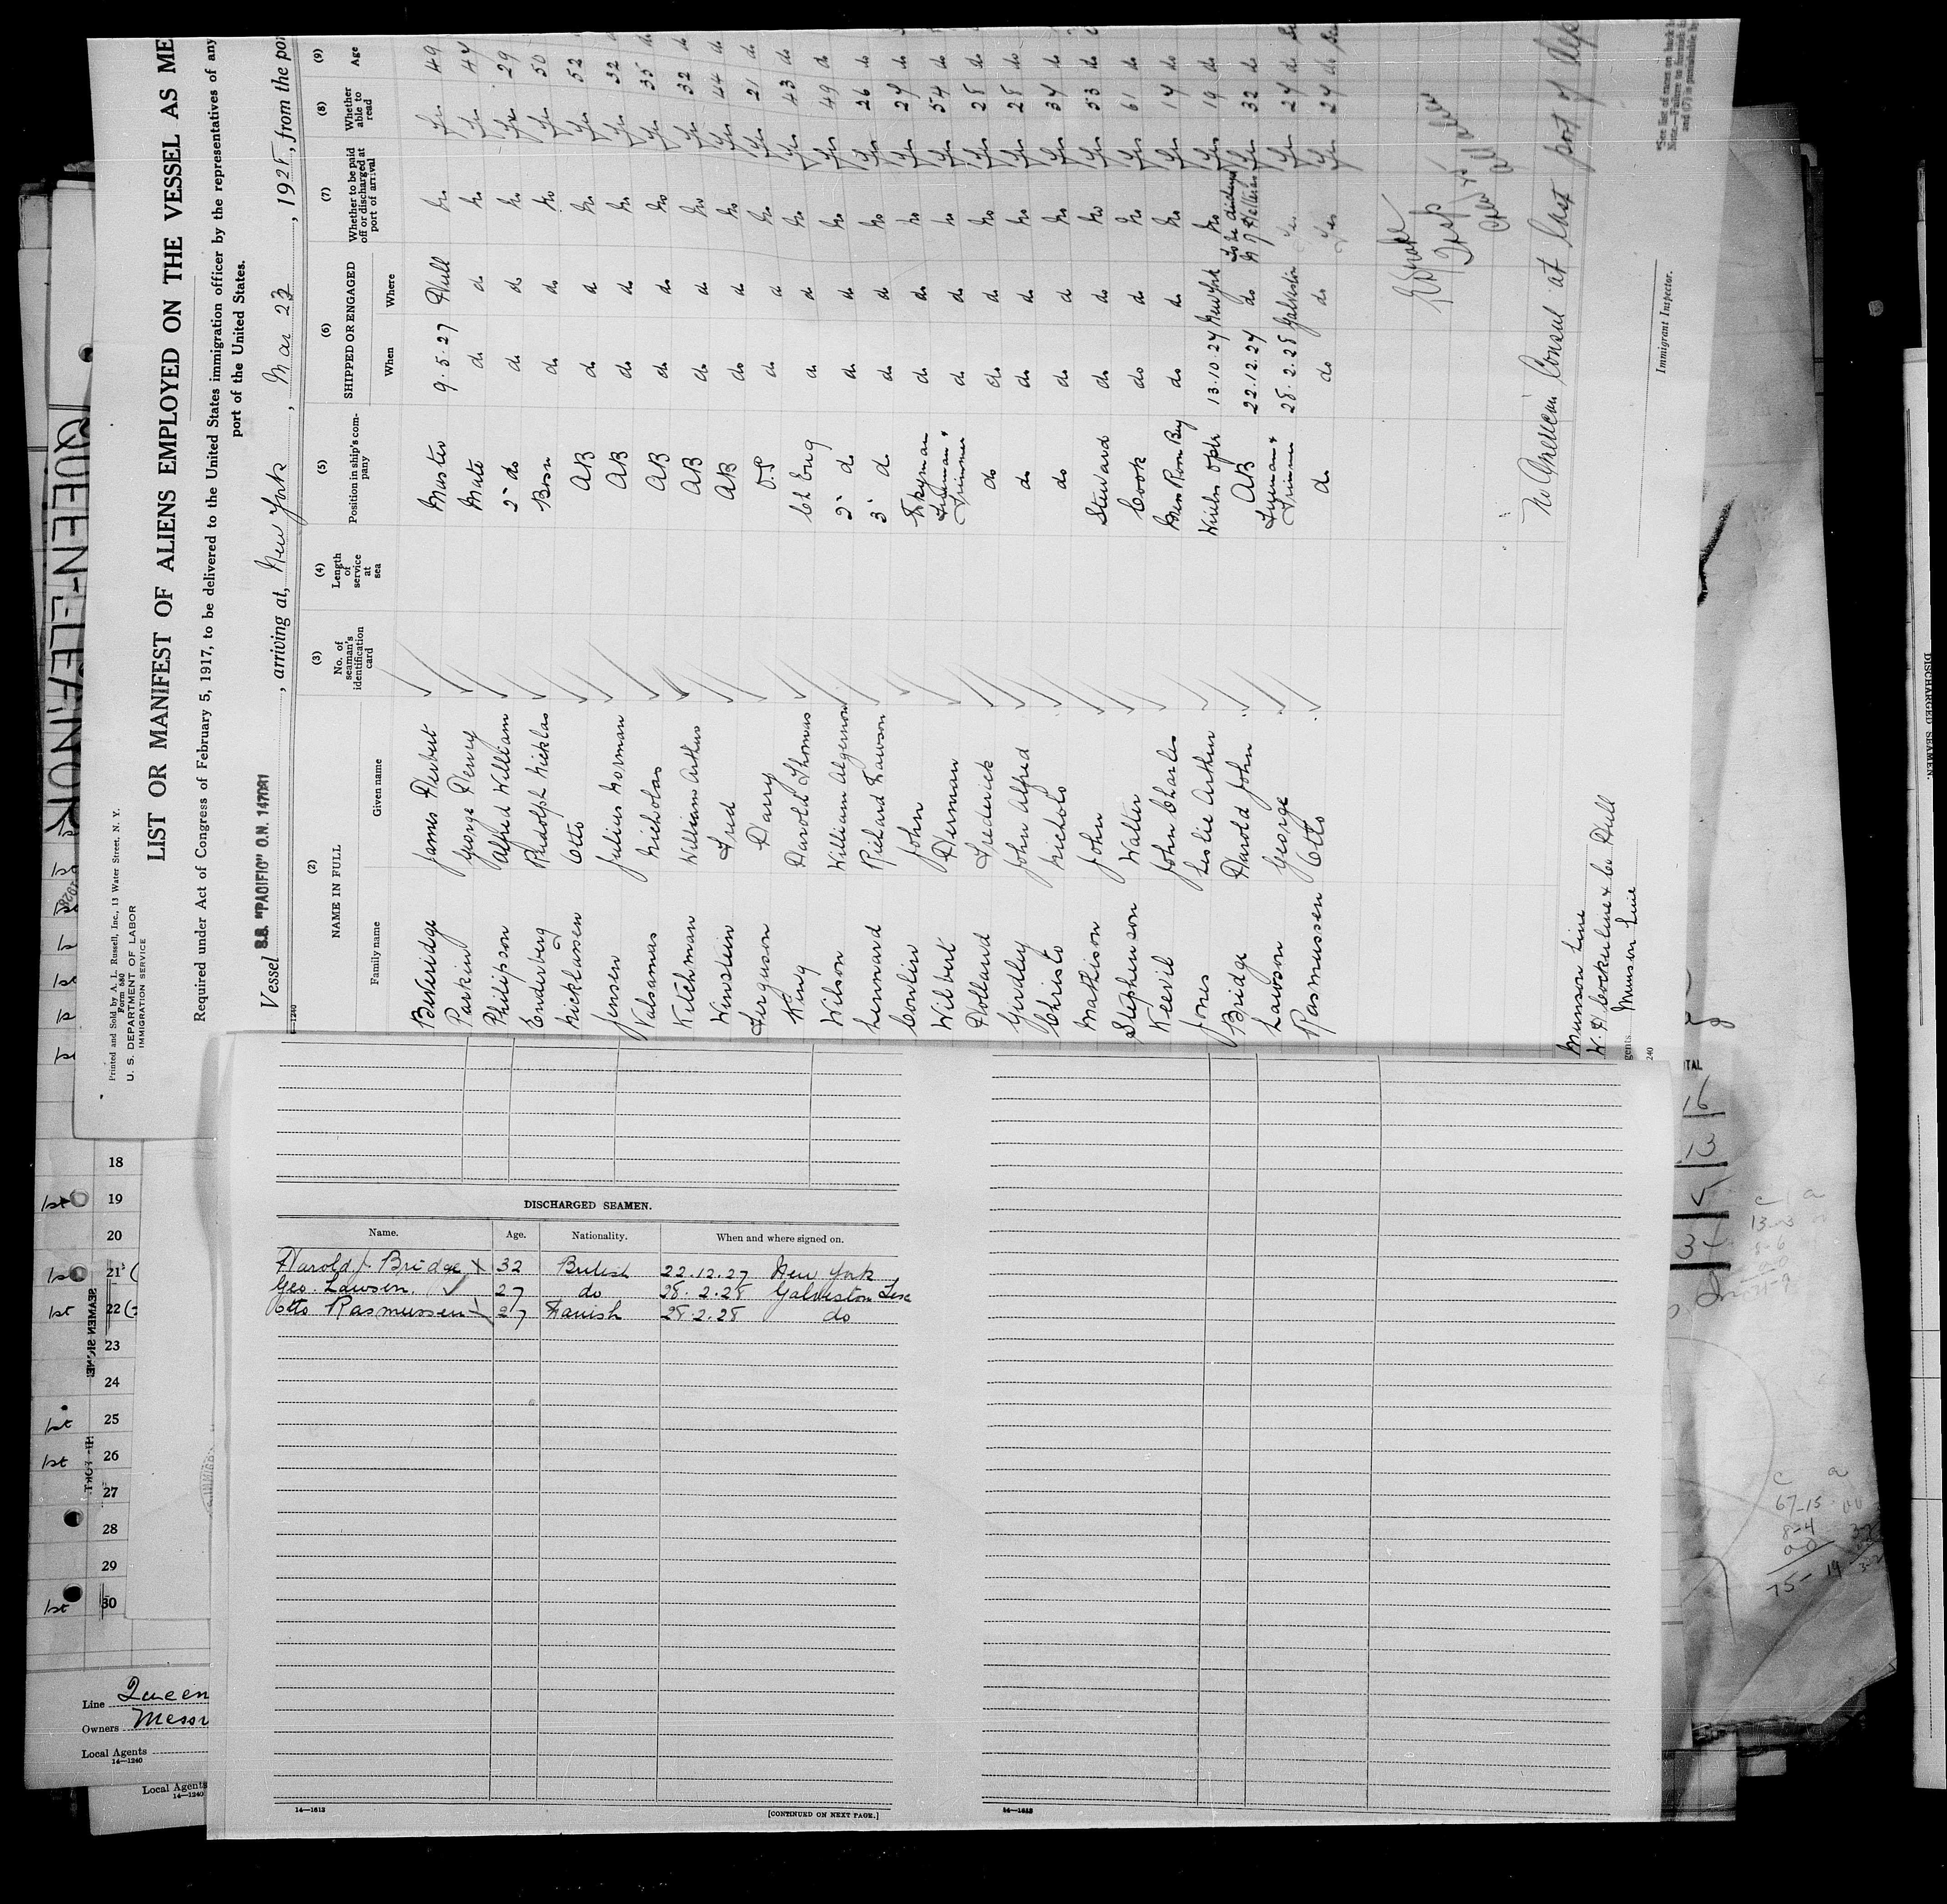 Printed and Sold by A. L. Russell, Inc., 13 Water Street, N. Y.
Form 680
U. S. DEPARTMENT OF LABOR
IMMIGRATION SERVICE
LIST OR MANIFEST OF ALIENS EMPLOYED ON THE VESSEL AS ME
Required under Act of Congress of February 5, 1917, to be delivered to the United States immigration officer by the representatives of any
port of the United States.
Vessel S.S. "PACIFIC" O.N. 147091, arriving at, New York, Mar 23, 1928, from the por
(2) (3) (4) (5) (6) (7) (8) (9)
NAME IN FULL No. of seaman's identification card Length of service at sea Position in ship's company SHIPPED OR ENGAGED Whether to be paid off or discharged at port of arrival Whether able to read Age
Family name Given name When Where
Beveridge James Herbert Master 9.5.27 Hull No Yes 49
Parkin George Henry Mate do do No Yes 47
Philipson Alfred William 2 do do do No Yes 29
Enderberg Rudolph Nicklas Bosn do do No Yes 50
Nicklassen Otto AB do do No Yes 52
Jensen Julius Norman AB do do No Yes 32
Valsamas Nicholas AB do do No Yes 35
Kitchman William Arthur AB do do No Yes 32
Winstein Fred AB do do No Yes 44
Ferguson Harry O.S do do No Yes 21 do
King Harold Thomas Ch Eng do do No Yes 43 do
Wilson William Algernon 2 do do do No Yes 49 do
Lennard Richard Fawson 3 do do do No Yes 26 do
Conlin John do do No Yes 27 do
Wilbert Herman Fireman & Trimmer do do No Yes 54 do
Holland Frederick do do do No Yes 28 do
Girdley John Alfred do do do No Yes 28 do
Christo Nichols do do do No Yes 37 do
Mathison John Steward do do No Yes 53 do
Stephenson Walter Cook do do No Yes 61 do
Keevil John Charles Mess Room Boy do do No Yes 17 do
Jones Leslie Arthur Wireless Opr 13.10.27 New York No Yes 19 do
Bridge Harold John AB 22.12.27 do Yes 32 do
Lawson George Fireman & Trimmer 28.2.28 Galveston Yes Yes 27 do
Rasmussen Otto do do do Yes Yes 27 do
No American Consul at last port of dep
Munson Line
Munson Line
Immigrant Inspector.
DISCHARGED SEAMEN.
Name. Age. Nationality. When and where signed on.
Harold J. Bridge 32 British 22.12.27 New York
Geo. Lawson. 27 do 28.2.28 Galveston Tex
Otto Rasmussen 27 Danish 28.2.28 do
14—1613 [CONTINUED ON NEXT PAGE.]
14—1613
18
19
20
21
22
23
24
25
26
27
28
29
30
Line Queen
Owners Messr
Local Agents
14—1240
Local Agents
14—1240
QUEEN ELEANOR
DISCHARGED SEAMEN.